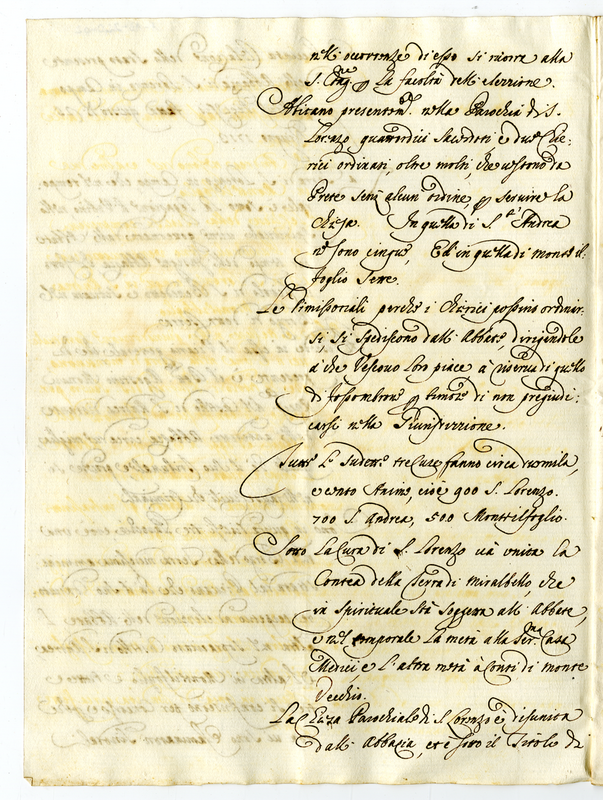 nelli occorrenze di esso si ricorre alla
S. Cong.ne p la facoltà dell' elezzione.
Abitano presentem.te nella Parochia di S.
Lorenzo quattordici Sacerdoti e due Chie:
rici ordinari, oltre molti, che vestono da
Prete senz' alcun ordine, p servire la
Chiesa. In quella di S.t' Andrea
ve sono cinque, Ed in quella di monte il:
foglio Sette.
Le Dimissoriali perche i Chierici possino ordinar:
si, si spediscono dall' Abbate dirigendole
à che Vescovo loro piace à riserva di quello
di Fossombrone p timore di non pregiudi:
carsi nella Giurisdizzione.
Tutte Le Sudette tre Cure fanno circa duemila,
e cento Anime, cioè 900 S. Lorenzo.
700 S. Andrea, 500 Montilfoglio.
Sotto La Cura di S. Lorenzo và unita la
Contea della Terra di Miralbello, che
in Spirituale Stà Soggetta all' Abbate,
e nel temporale La metà alla Ser.ma Casa
Medici, e L'altra metà à Conti di monte
Vecchio.
La Chiesa Parochiale di S. Lorenzo è disunita
dall' Abbazia, et è sotto il Titolo di